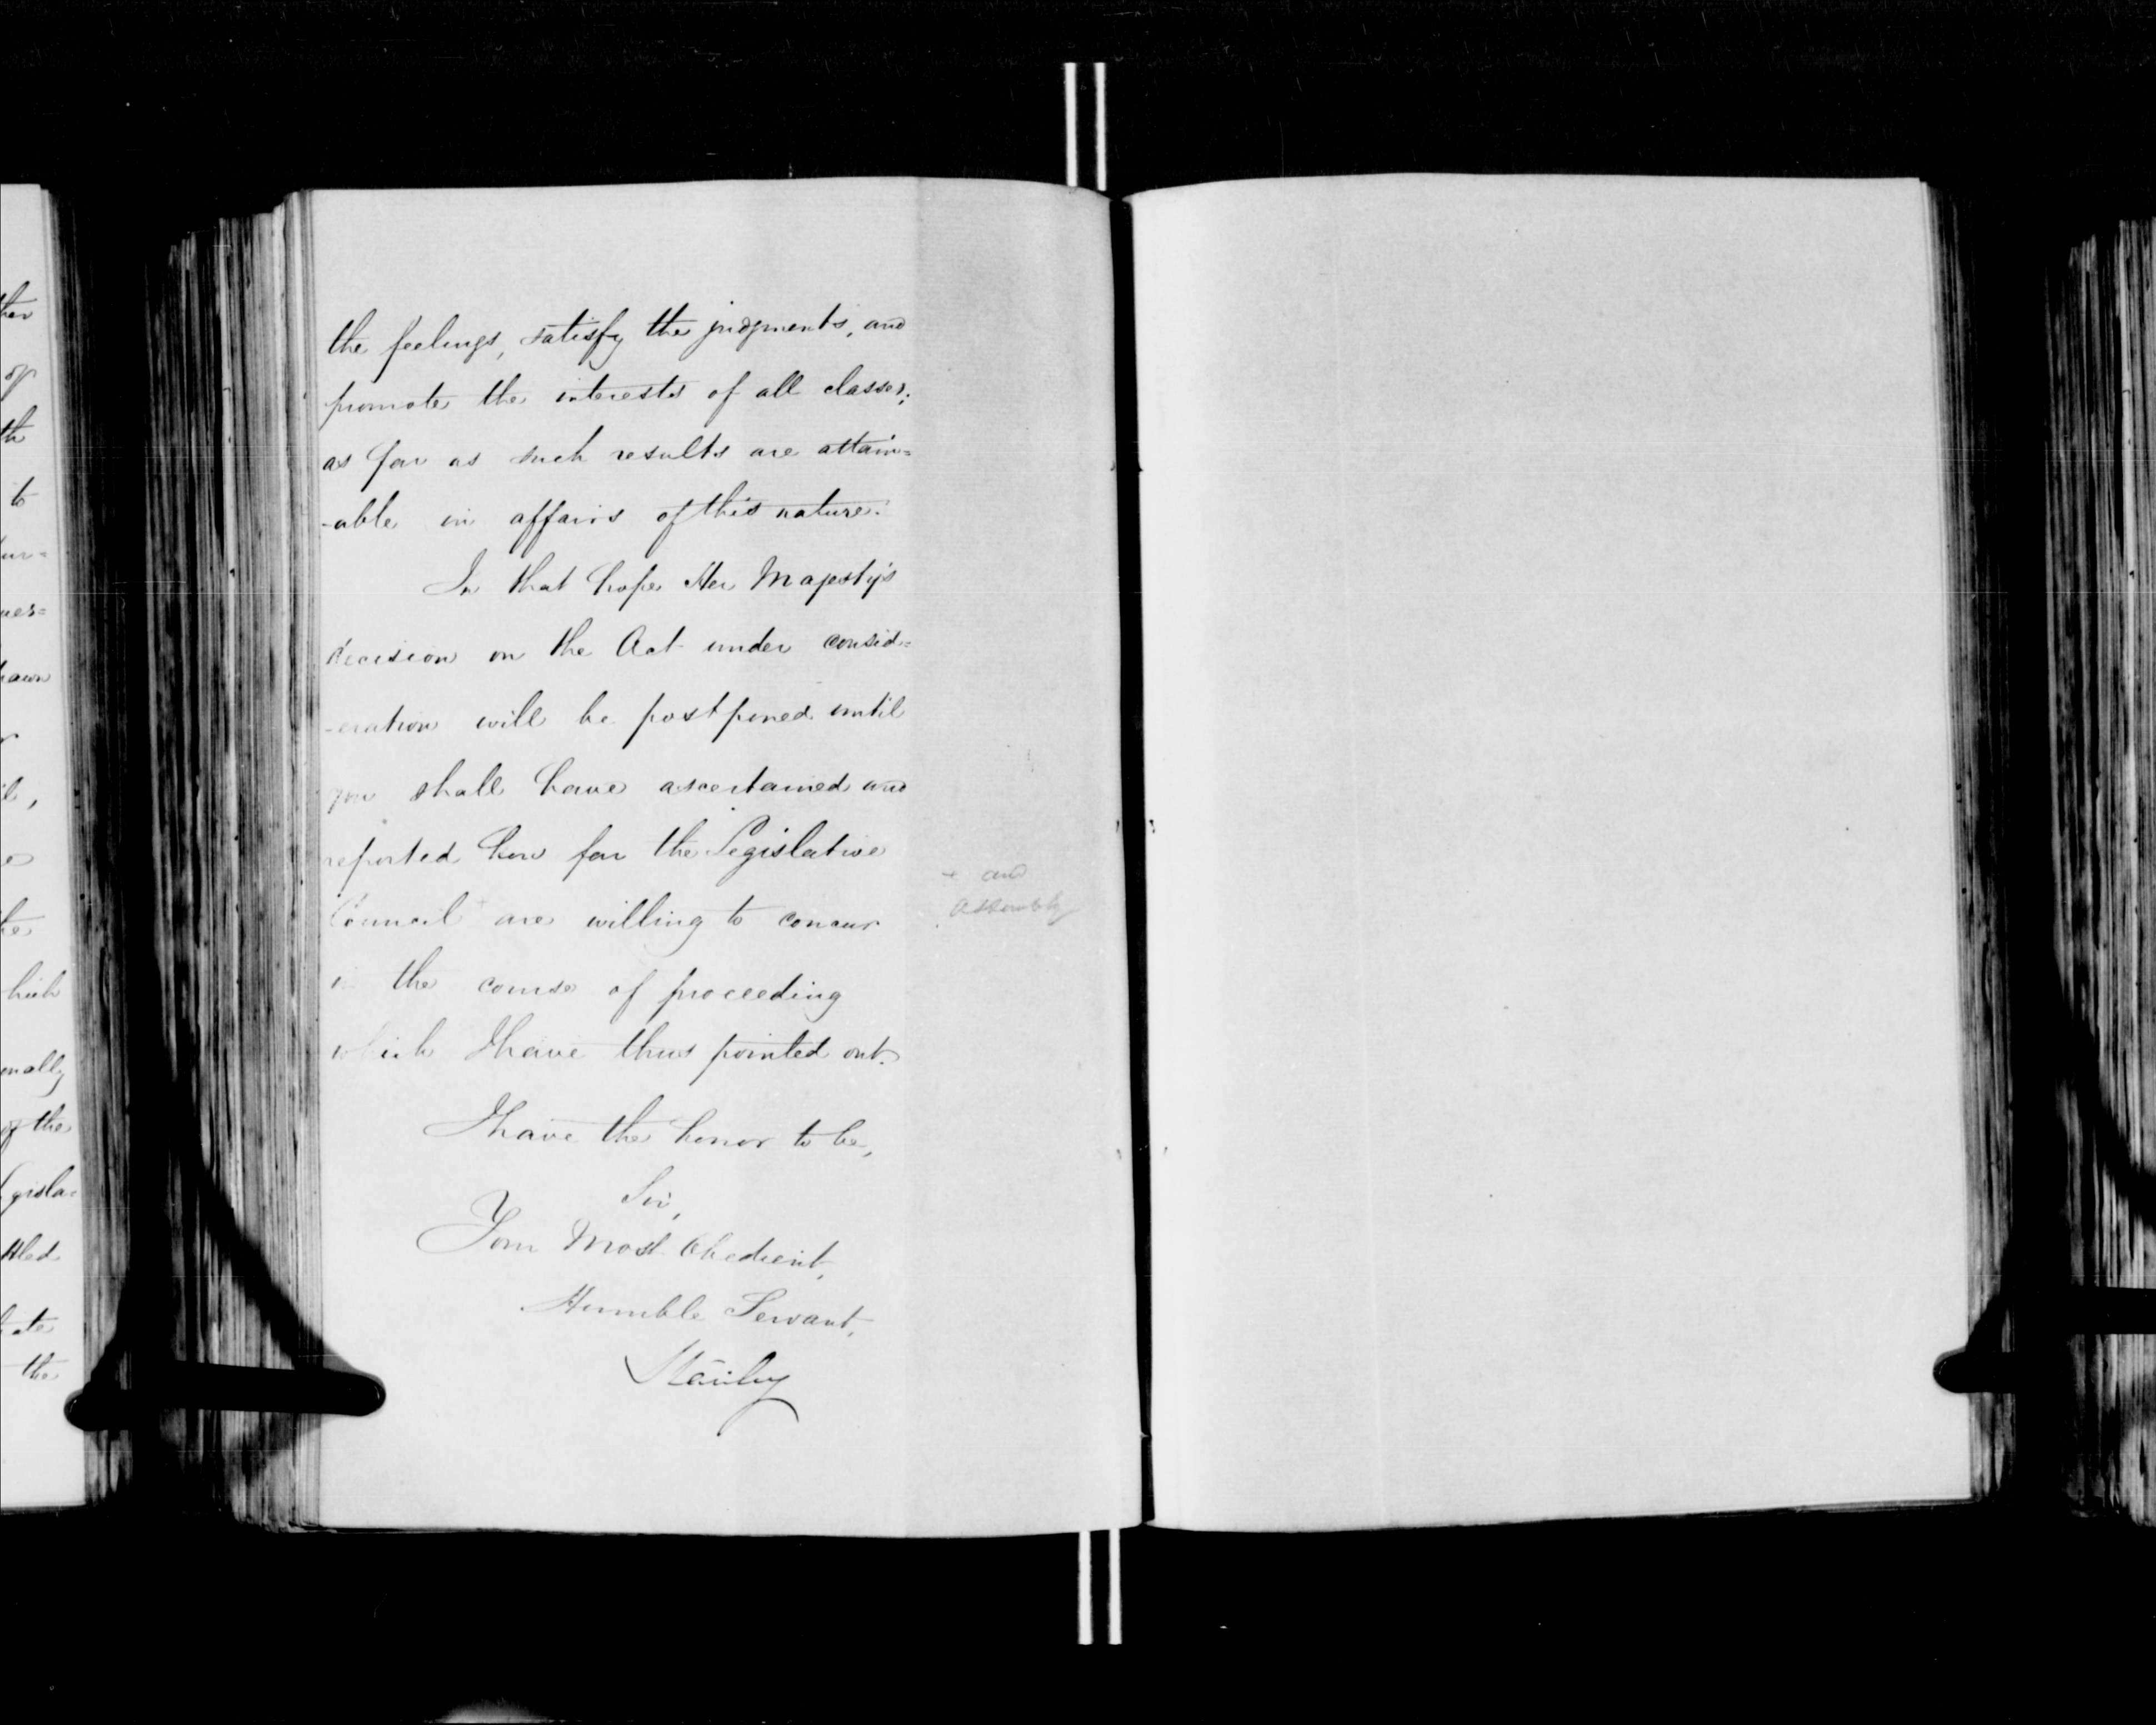 the feelings, satisfy the judgments, and
promote the interests of all classes;
as far as such results are attain=
-able in affairs of this nature.
In that hope Her Majesty's
decision on the Act under consid=
-eration will be postponed until
you shall have ascertained and
reported how far the Legislative
Council + are willing to concur
in the course of proceeding
which I have thus pointed out.
I have the honor to be,
Sir,
Your Most Obedient,
Humble Servant,
Stanley
+ and
Assembly
ther
of
th
to
hich
of the
the